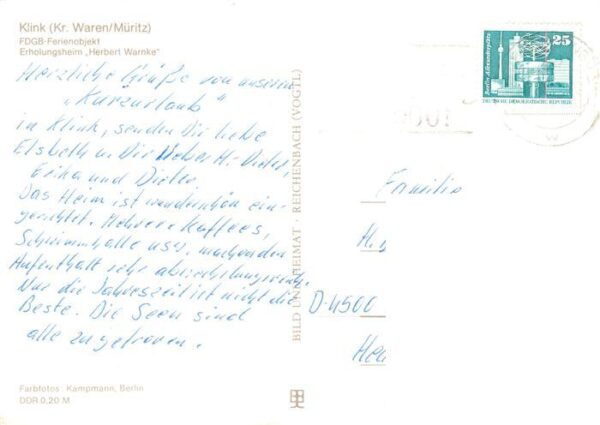 Klink (Kr. Waren/Müritz)
FDGB-Ferienobjekt
Erholungsheim „Herbert Warnke“
Herzliche Grüße von unserem
„Kurzurlaub“
in Klink, senden Dir liebe
Elsbeth u. Dir lieber H.-Dieter,
Erika und Dieter
Das Heim ist wunderschön ein-
gerichtet. Mehrere Kaffees,
Schwimmhalle usw. machen den
Aufenthalt sehr abwechslungsreich.
Nur die Jahreszeit ist nicht die
Beste. Die Seen sind
alle zugefroren.
Farbfotos: Kampmann, Berlin
DDR 0,20 M
BILD UND HEIMAT · REICHENBACH (VOGTL)
Berlin, Alexanderplatz
25
DEUTSCHE DEMOKRATISCHE REPUBLIK
Familie
H.
D-4500